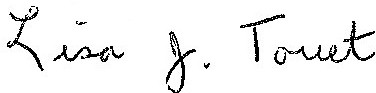 Lisa J. Touet